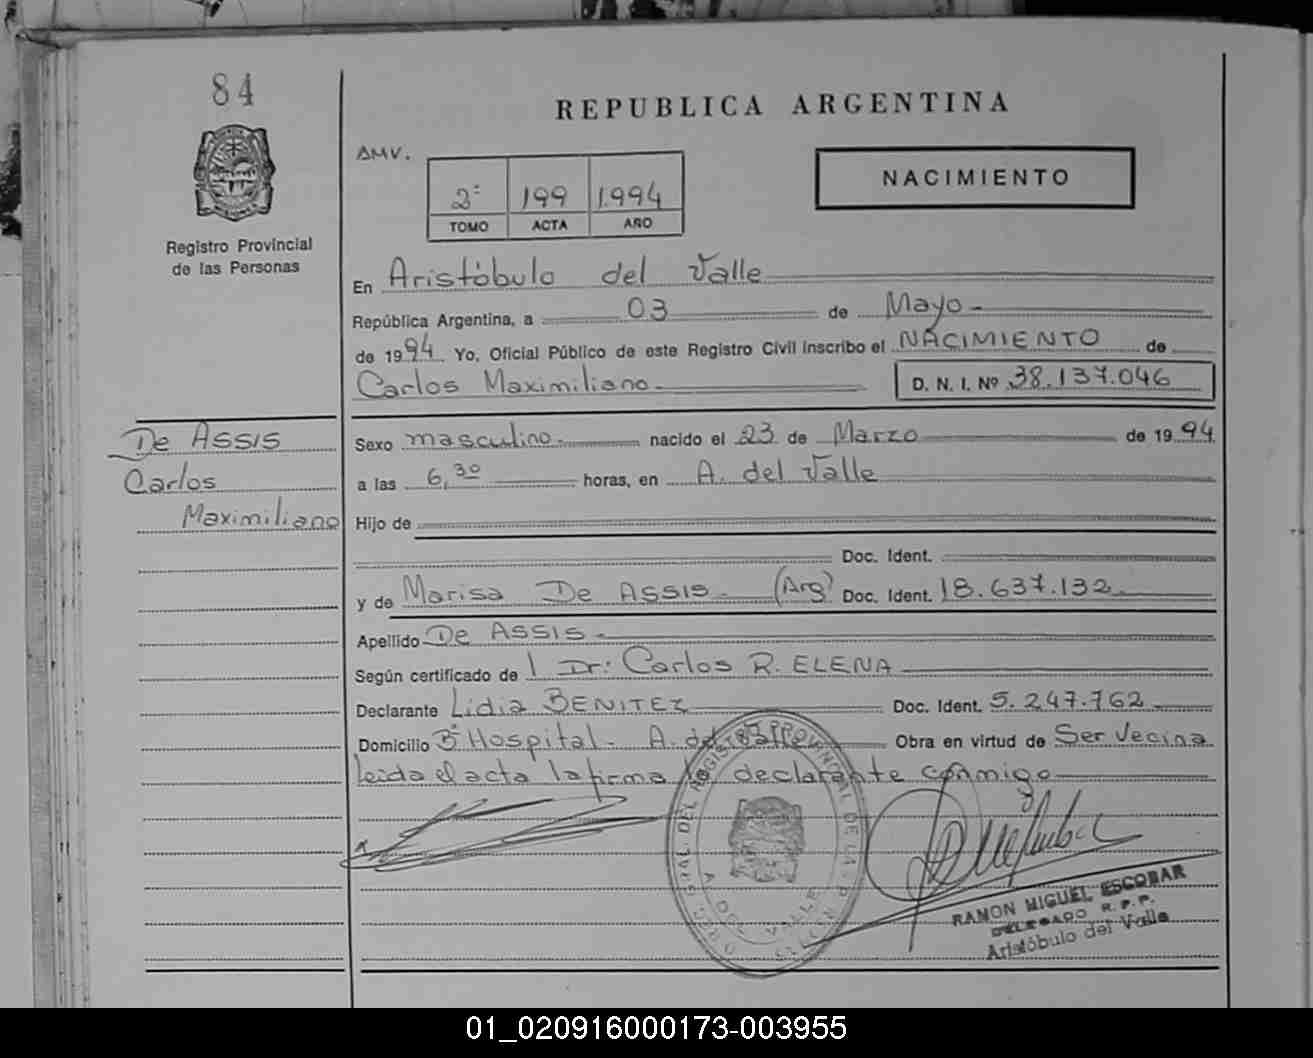 84
REPUBLICA ARGENTINA
AMV.
2º 199 1.994
TOMO ACTA AÑO
NACIMIENTO
Registro Provincial
de las Personas
En Aristóbulo del Valle
República Argentina, a 03 de Mayo
de 1994 Yo, Oficial Público de este Registro Civil inscribo el NACIMIENTO de
Carlos Maximiliano. D. N. I. Nº 38.137.046
De Assis
Carlos
Maximiliano
Sexo masculino. nacido el 23 de Marzo de 1994
a las 6,30 horas, en A. del Valle
Hijo de
Doc. Ident.
y de Marisa De Assis (Arg) Doc. Ident. 18.637.132
Apellido De Assis.
Según certificado de l Dr: Carlos R. ELENA
Declarante Lidia BENITEZ Doc. Ident. 5.247.762
Domicilio Bº Hospital. A. del Valle Obra en virtud de Ser Vecina
leida el acta la firma la declarante conmigo
A. DEL VALLE
RAMON MIGUEL ESCOBAR
DELEGADO R. P. P.
Aristóbulo del Valle
01_020916000173-003955